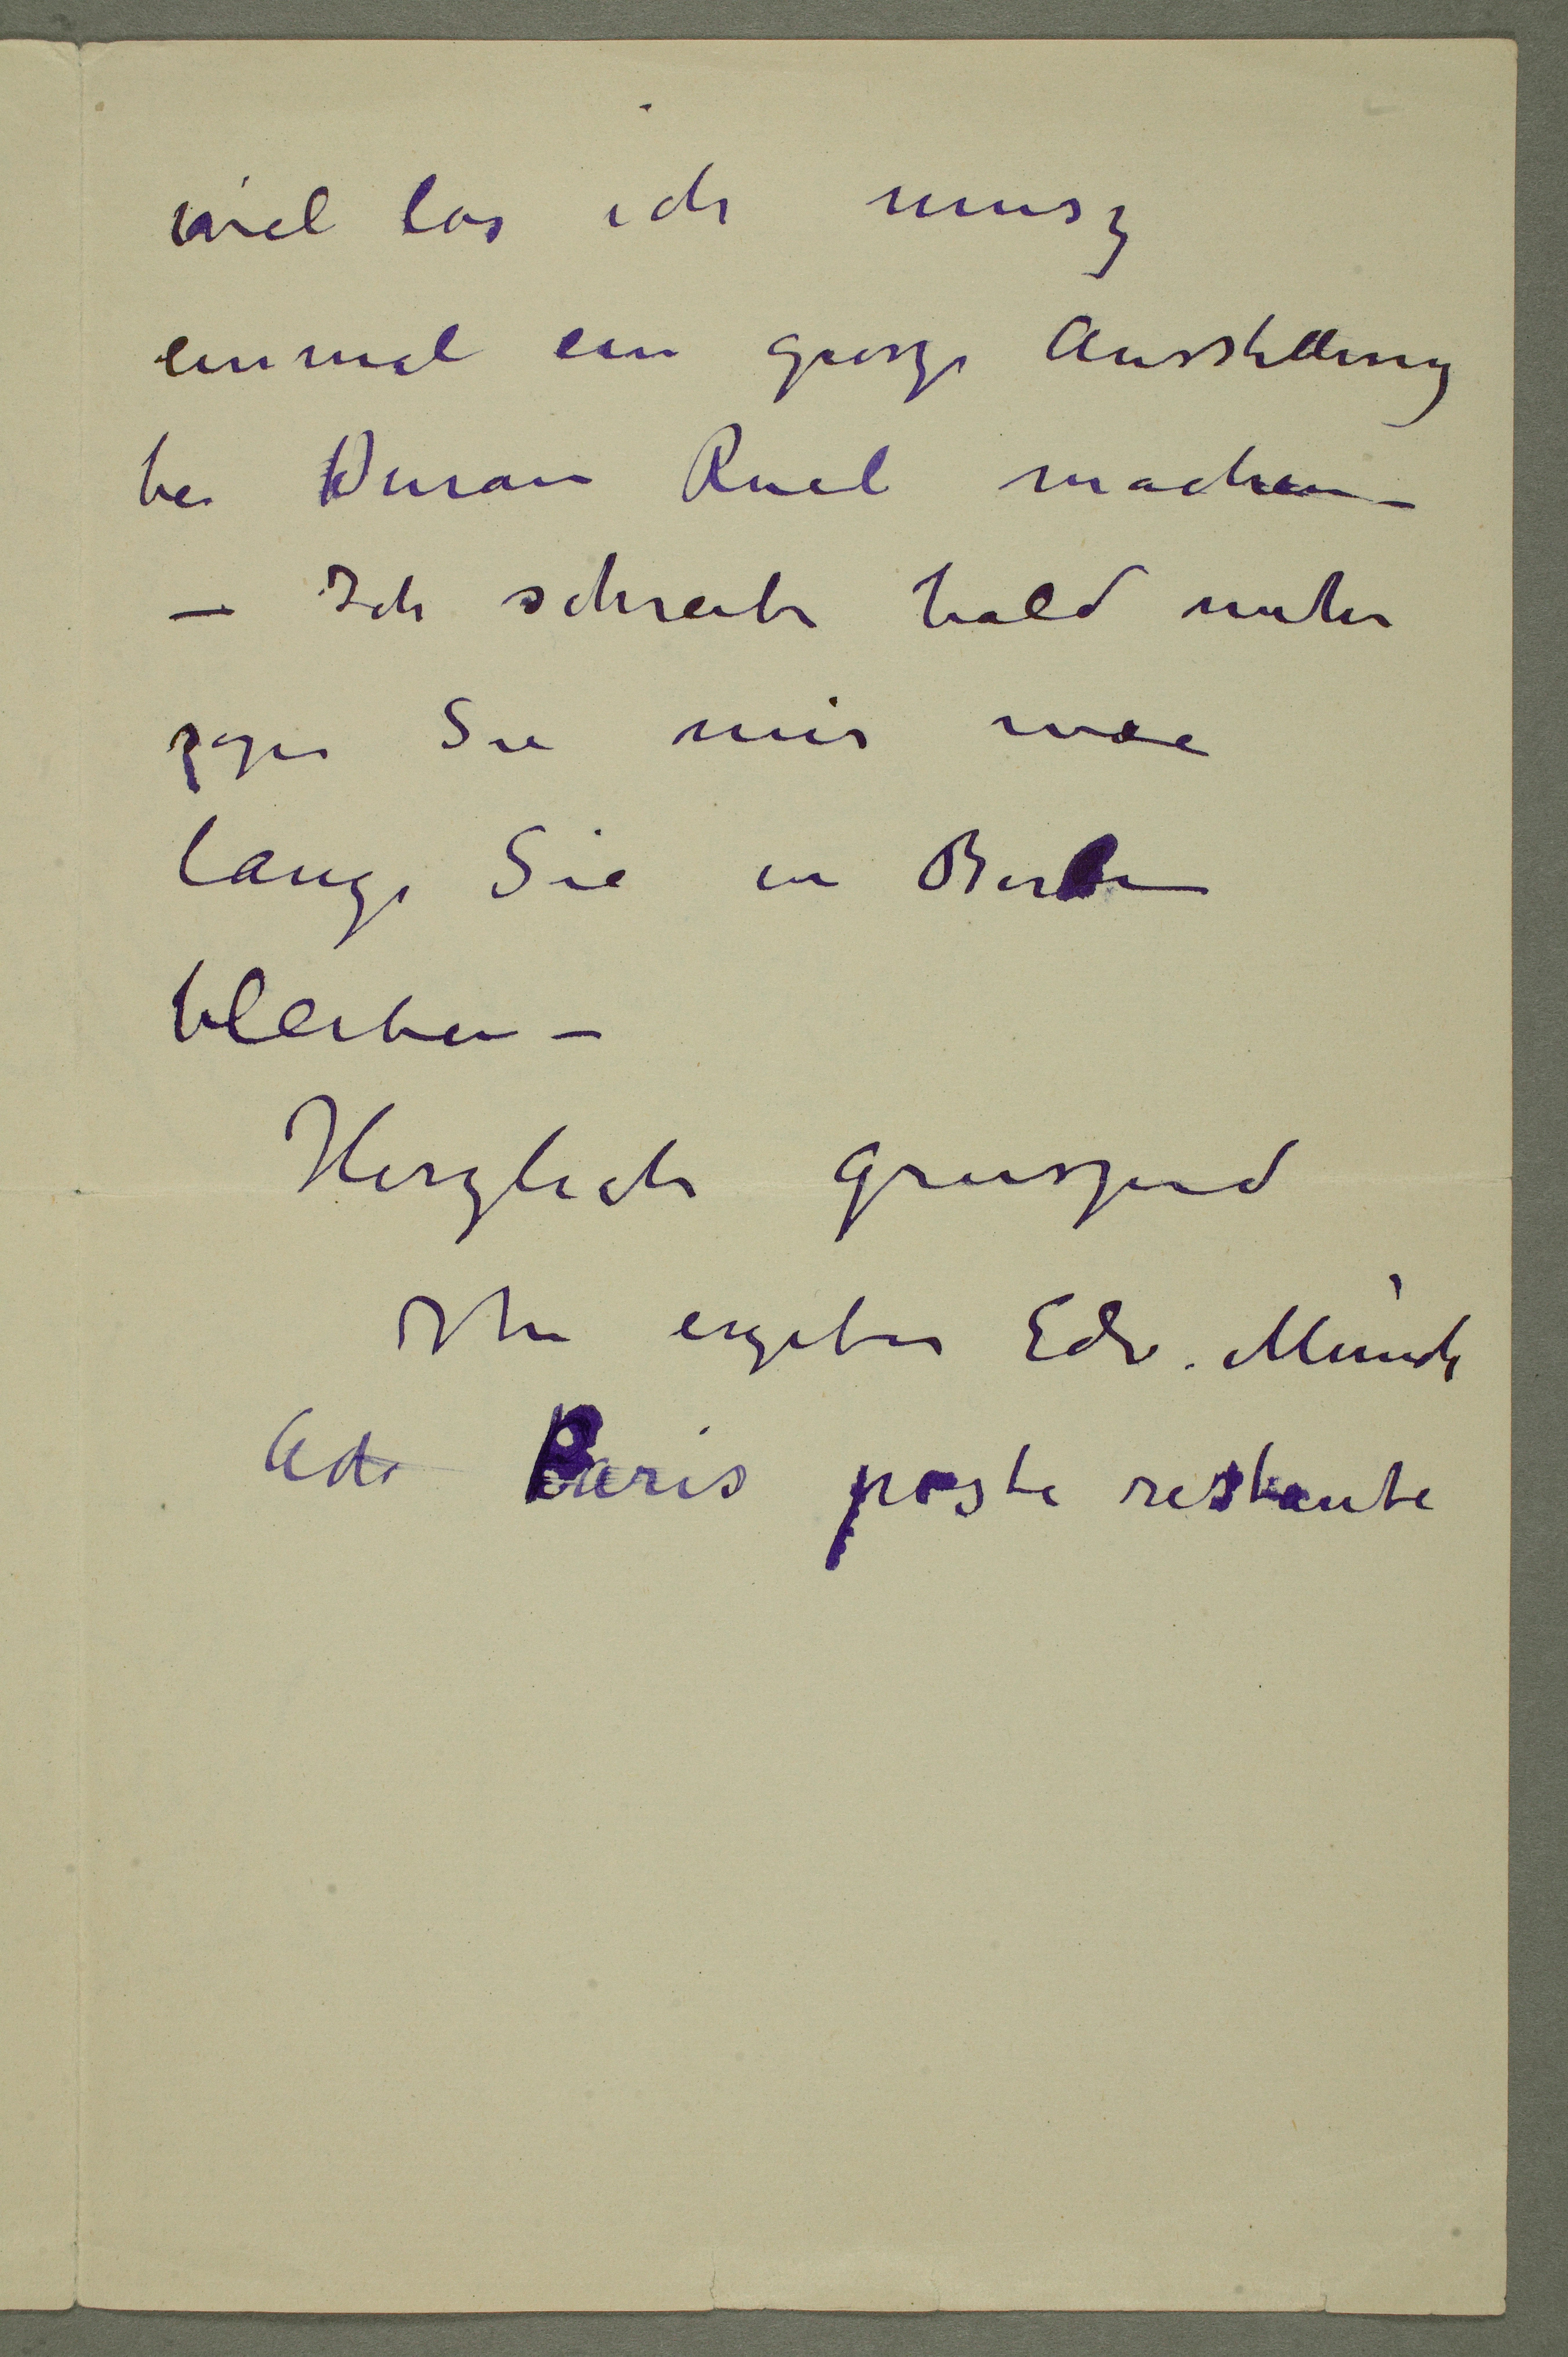 viel los ich musz
einmal ein grosze Ausstellung
bei Duran Ruel machen –
– Ich schreibe bald mehr
sagen Sie mir wie
lange Sie in Berlin
bleiben –
Herzlich gruszend
Ihr ergeben Edv. Munch
Adr Paris poste restante